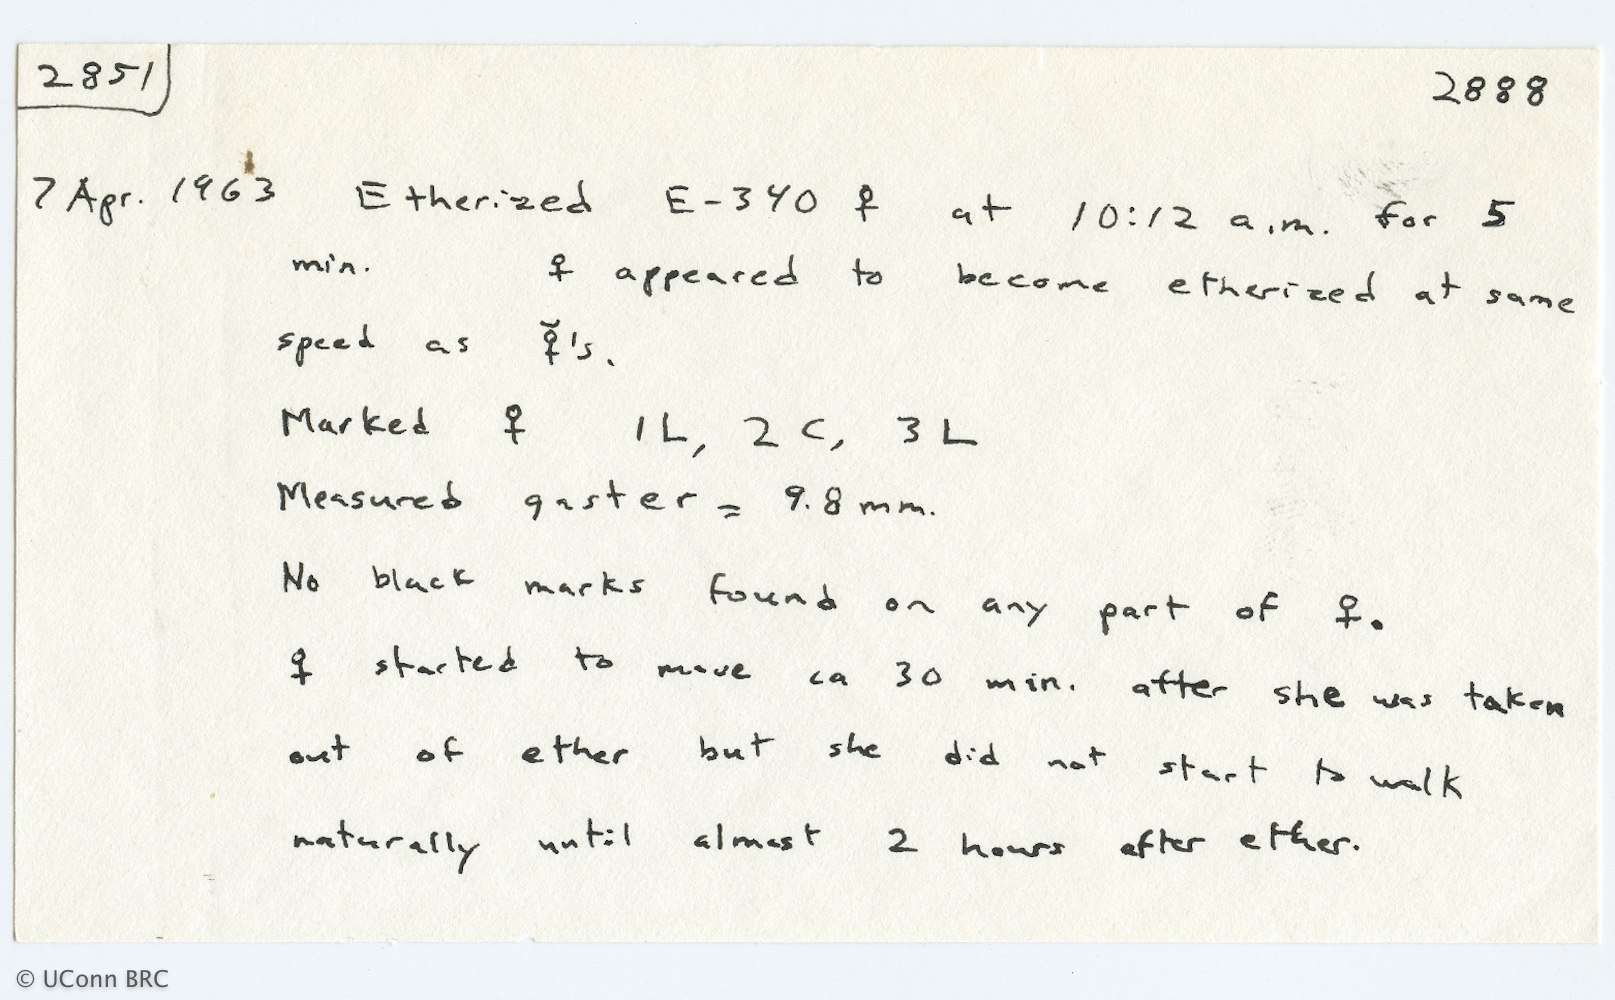 2851
2888
7 Apr. 1963 Etherized E-340 ♀ at 10:12 a.m. for 5
min. ♀ appeared to become etherized at same
speed as ☿'s.
Marked ♀ 1L, 2C, 3L
Measured gaster = 9.8 mm.
No black marks found on any part of ♀.
♀ started to move ca 30 min. after she was taken
out of ether but she did not start to walk
naturally until almost 2 hours after ether.
© UConn BRC